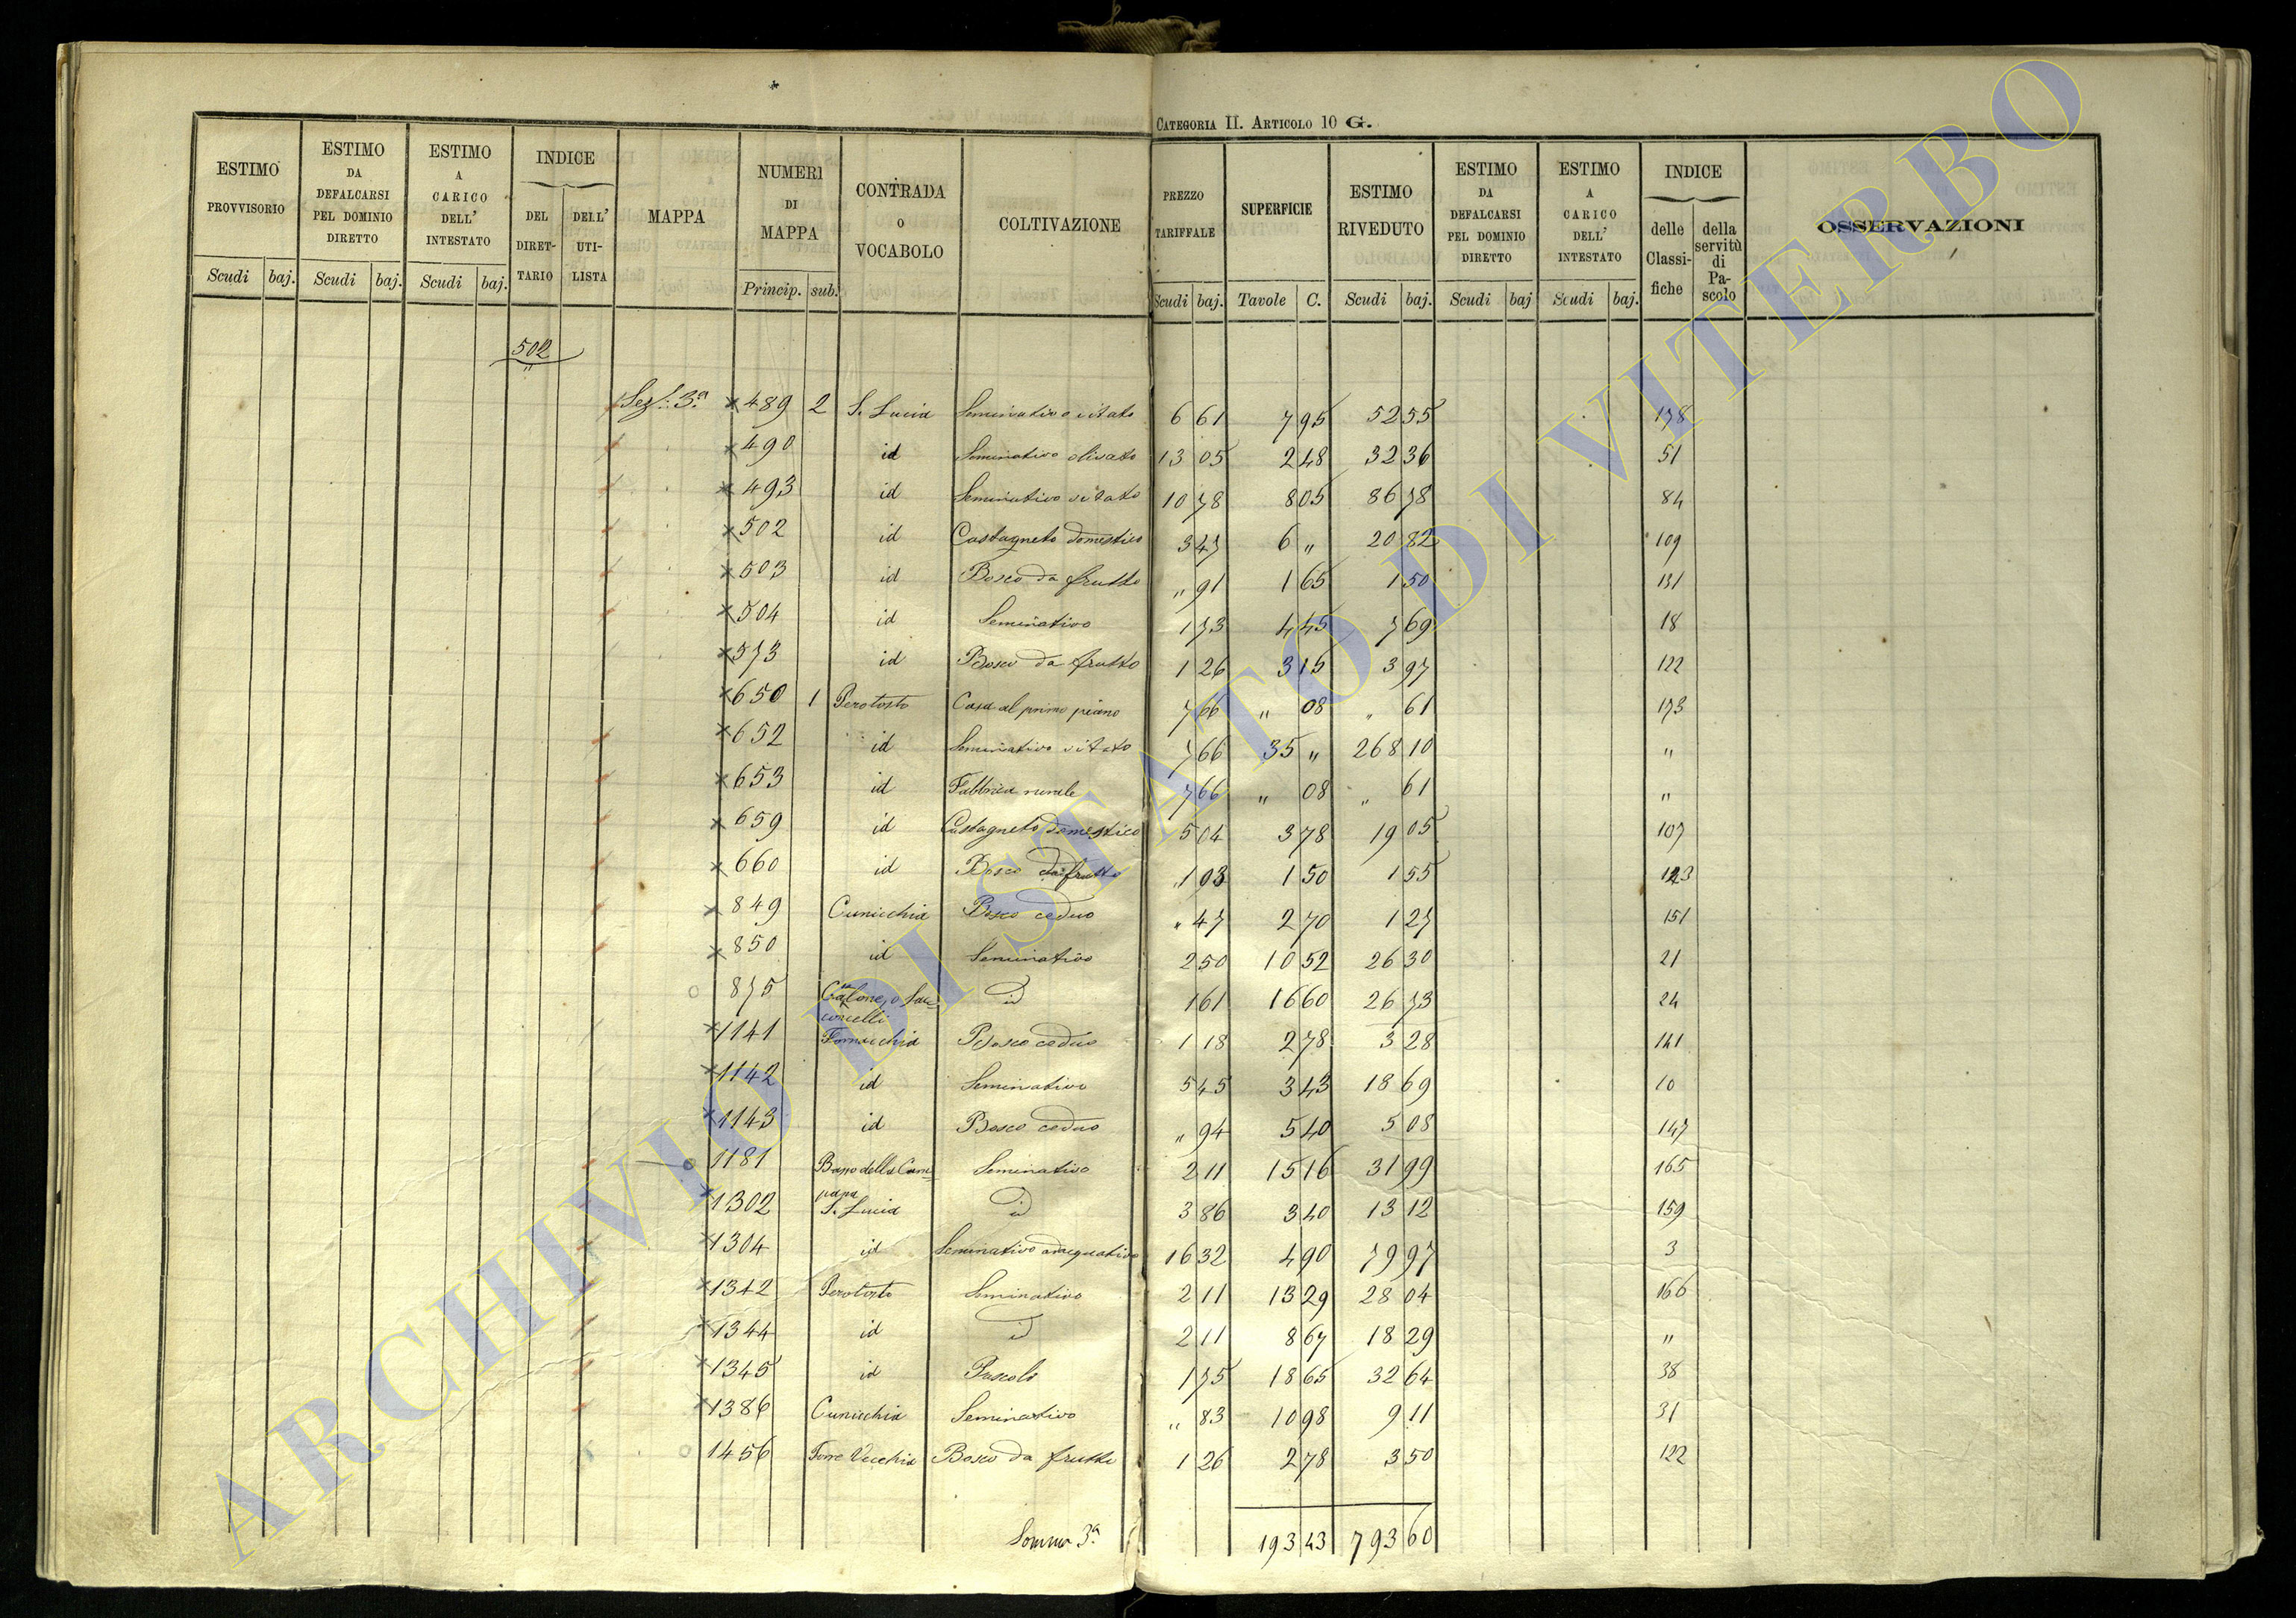 CATEGORIA II. ARTICOLO 10 G.
ESTIMO PROVVISORIO Scudi baj. ESTIMO DA DEFALCARSI PEL DOMINIO DIRETTO Scudi baj. ESTIMO A CARICO DELL' INTESTATO Scudi baj. INDICE DEL DIRETTARIO DELL' UTILISTA MAPPA NUMERI DI MAPPA Princip. sub. CONTRADA O VOCABOLO COLTIVAZIONE PREZZO TARIFFALE Scudi baj. SUPERFICIE Tavole C. ESTIMO RIVEDUTO Scudi baj. ESTIMO DA DEFALCARSI PEL DOMINIO DIRETTO Scudi baj ESTIMO A CARICO DELL' INTESTATO Scudi baj. INDICE delle Classifiche della servitù di Pascolo OSSERVAZIONI
502
"
Sez: 3ª × 489 2 S. Lucia Seminativo vitato 6 61 7 95 52 55 178
× 490 id Seminativo olivato 13 05 2 48 32 36 51
× 493 id Seminativo vitato 10 78 8 05 86 78 84
× 502 id Castagneto domestico 3 47 6 " 20 82 109
× 503 id Bosco da frutto " 91 1 65 1 50 131
× 504 id Seminativo 1 73 4 45 7 69 18
× 573 id Bosco da frutto 1 26 3 15 3 97 122
× 650 1 Perotosto Casa al primo piano 7 66 " 08 " 61 173
× 652 id Seminativo vitato 7 66 35 " 268 10 "
× 653 id Fabbrica rurale 7 66 " 08 " 61 "
× 659 id Castagneto domestico 5 04 3 78 19 05 107
× 660 id Bosco da frutto 1 03 1 50 1 55 123
× 849 Cunicchia Bosco ceduo " 47 2 70 1 27 151
× 850 id Seminativo 2 50 10 52 26 30 21
o 875 id 1 61 16 60 26 73 24
× 1141 Fornacchia Bosco ceduo 1 18 2 78 3 28 141
× 1142 id Seminativo 5 45 3 43 18 69 10
× 1143 id Bosco ceduo " 94 5 40 5 08 147
o 1181 Basso della Campana Seminativo 2 11 15 16 31 99 165
× 1302 S. Lucia id 3 86 3 40 13 12 159
× 1304 id Seminativo adacquativo 16 32 4 90 79 97 3
× 1342 Perotosto Seminativo 2 11 13 29 28 04 166
× 1344 id id 2 11 8 67 18 29 "
× 1345 id Pascolo 1 75 18 65 32 64 38
× 1386 Cunicchia Seminativo " 83 10 98 9 11 31
o 1456 Torre Vecchia Bosco da frutto 1 26 2 78 3 50 122
Somma 3ª 193 43 793 60
ARCHIVIO DI STATO DI VITERBO